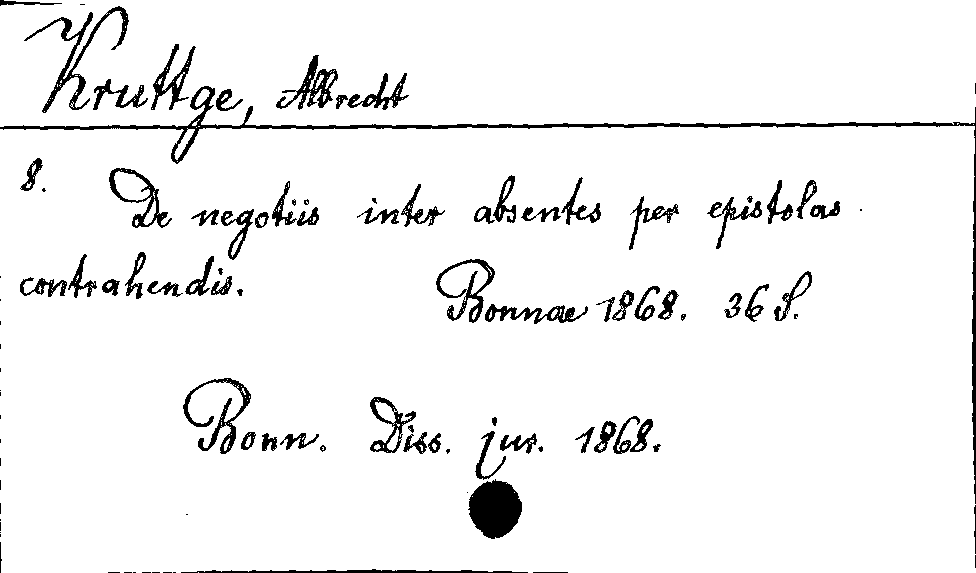 Kruttge, Albrecht
8. De negotiis inter absentes per epistolas
contrahendis. Bonnae 1868. 36 S.
Bonn. Diss. jur. 1868.